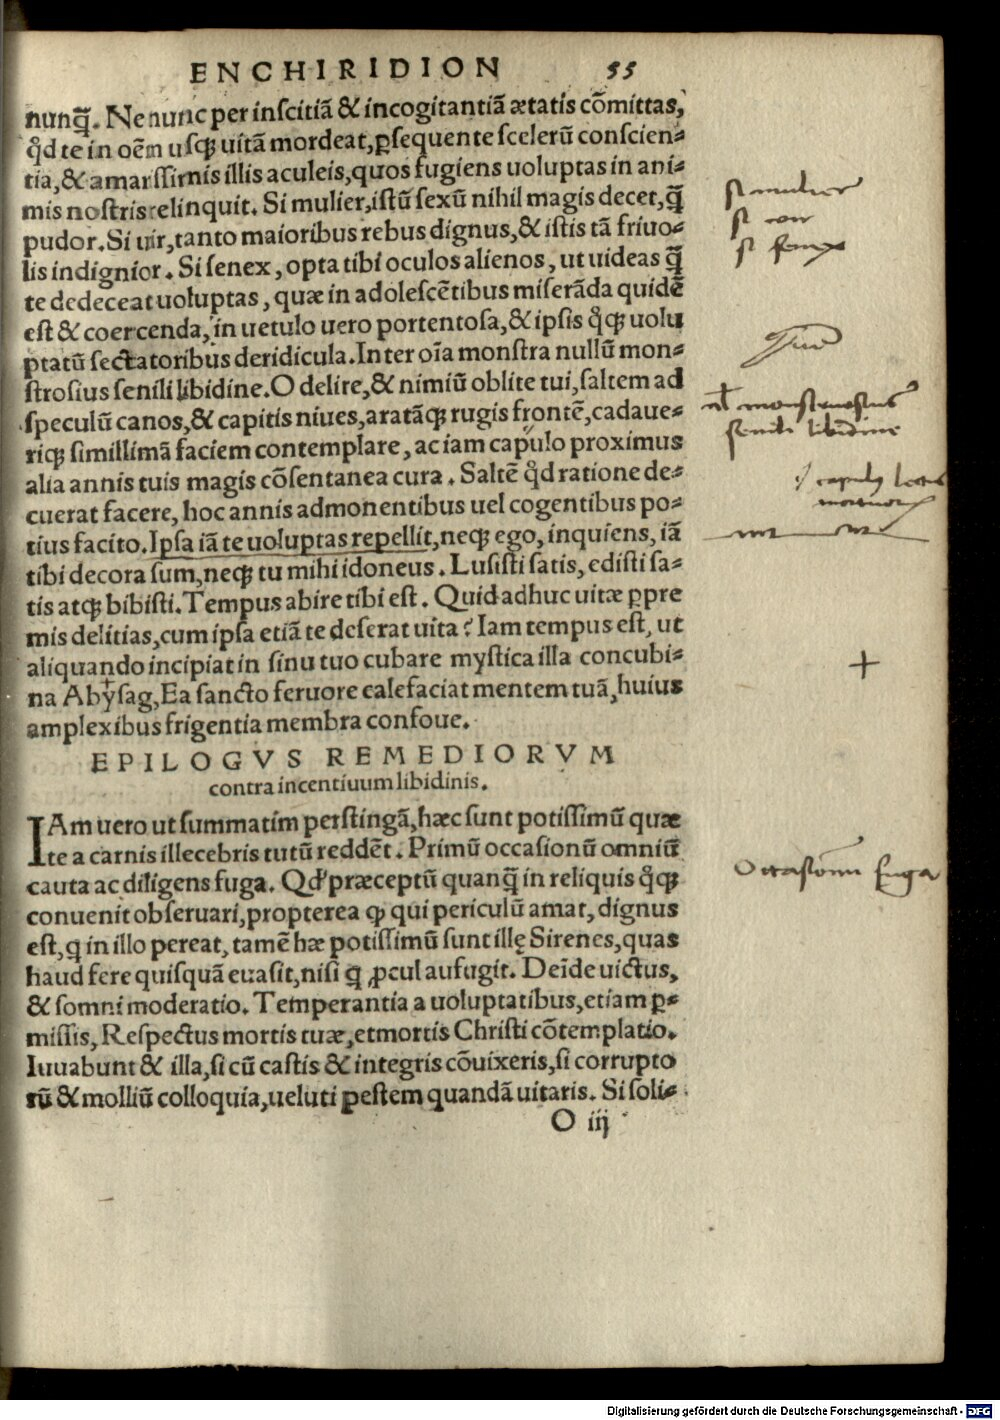 ENCHIRIDION 55
nunq̃. Ne nunc per inscitiã & incogitantiã ætatis cõmittas,
qd te in oẽm usq; uitã mordeat, ꝑsequente scelerũ conscien-
tia, & amarissimis illis aculeis, quos fugiens uoluptas in ani-
mis nostris relinquit. Si mulier, istũ sexũ nihil magis decet, q̃
pudor. Si uir, tanto maioribus rebus dignus, & istis tã friuo-
lis indignior. Si senex, opta tibi oculos alienos, ut uideas q̃
te dedeceat uoluptas, quæ in adolescẽtibus miserãda quidẽ
est & coercenda, in uetulo uero portentosa, & ipsis qq; uolu
ptatũ sectatoribus deridicula. Inter oĩa monstra nullũ mon-
strosius senili libidine. O delire, & nimiũ oblite tui, saltem ad
speculũ canos, & capitis niues, aratãq; rugis frontẽ, cadaue-
riq; simillimã faciem contemplare, ac iam capulo proximus
alia annis tuis magis cõsentanea cura. Saltẽ qd ratione de-
cuerat facere, hoc annis admonentibus uel cogentibus po-
tius facito. Ipsa iã te uoluptas repellit, neq; ego, inquiens, iã
tibi decora sum, neq; tu mihi idoneus. Lusisti satis, edisti sa-
tis atq; bibisti. Tempus abire tibi est. Quid adhuc uitæ ꝑpre
mis delitias, cum ipsa etiã te deserat uita? Iam tempus est, ut
aliquando incipiat in sinu tuo cubare mystica illa concubi-
na Abysag, Ea sancto feruore calefaciat mentem tuã, huius
amplexibus frigentia membra confoue.
EPILOGVS REMEDIORVM
contra incentiuum libidinis.
IAm uero ut summatim perstingã, hæc sunt potissimũ quæ
te a carnis illecebris tutũ reddẽt. Primũ occasionũ omniũ
cauta ac diligens fuga. Qđ præceptũ quanq̃ in reliquis qq;
conuenit obseruari, propterea ꝙ qui periculũ amat, dignus
est, q in illo pereat, tamẽ hæ potissimũ sunt illę Sirenes, quas
haud fere quisquã euasit, nisi q ꝓcul aufugit. Deĩde uictus,
& somni moderatio. Temperantia a uoluptatibus, etiam ꝑ-
missis, Respectus mortis tuæ, et mortis Christi cõtemplatio.
Iuuabunt & illa, si cũ castis & integris cõuixeris, si corrupto
rũ & molliũ colloquia, ueluti pestem quandã uitaris. Si soli-
O iij
si mulier
si vir
si senex
nl monstrosius
senili libidine
capulus locus
mortuorum
+
Occasionum fuga
Digitalisierung gefördert durch die Deutsche Forschungsgemeinschaft - DFG